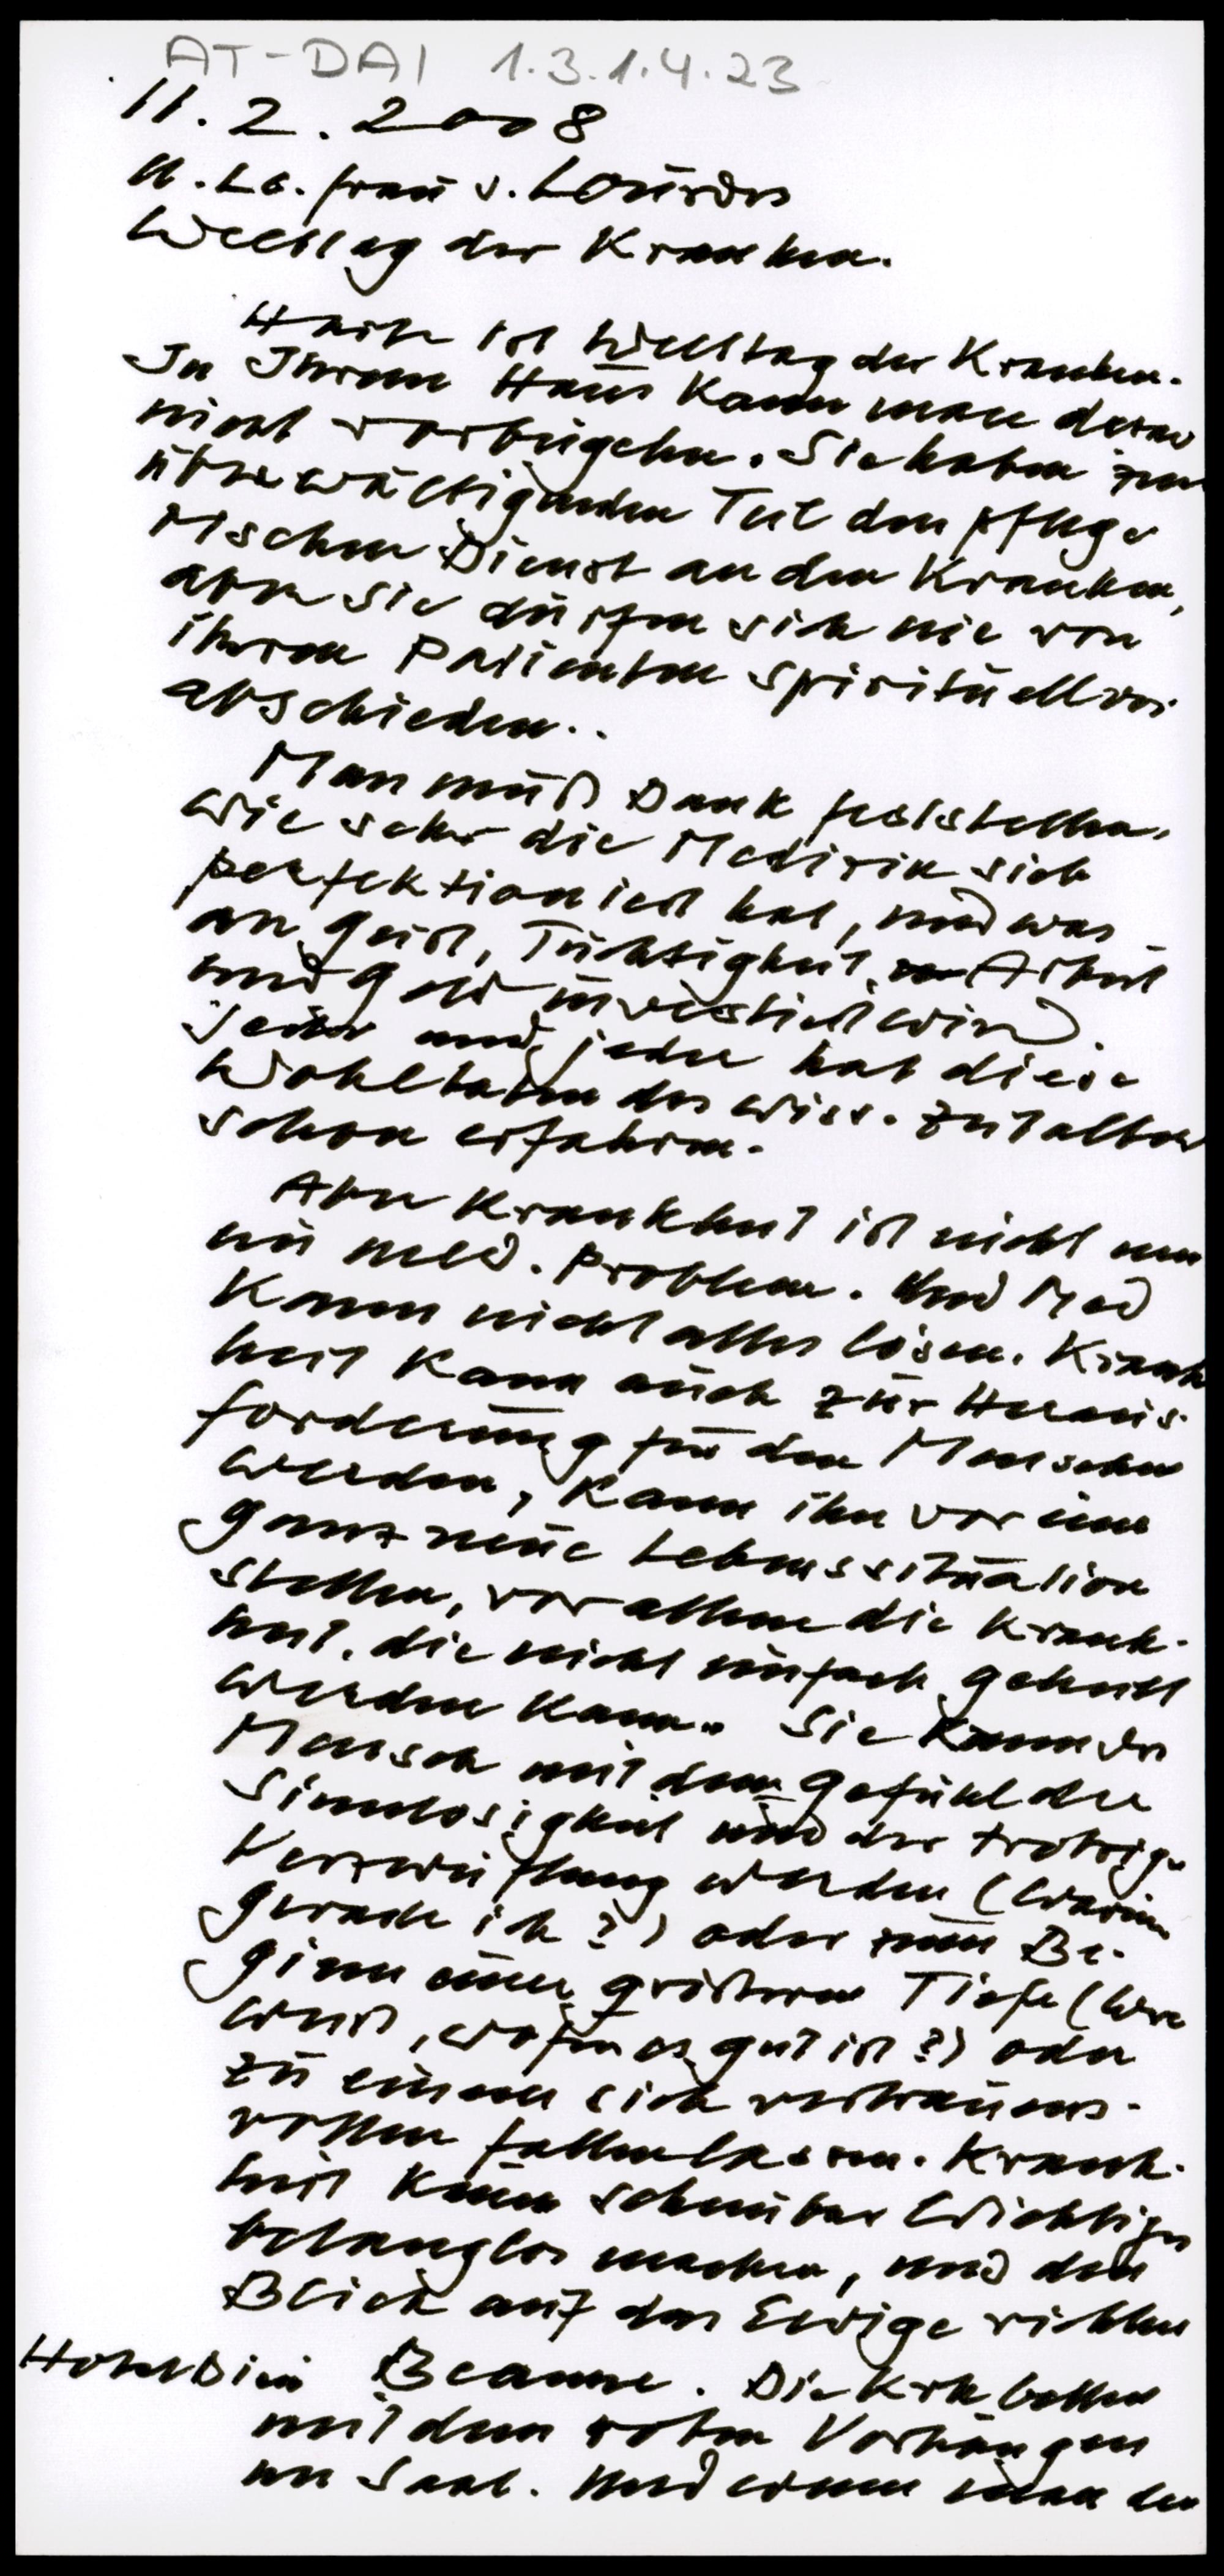 AT-DAI 1.3.1.4.23
11.2.2008
U. Lb. Frau v. Lourdes
Welttag der Kranken.
Heute ist Welttag der Kranken.
In Ihrem Haus kann man daran
nicht vorbeigehn. Sie haben zum
überwältigenden Teil den pflege
rischen Dienst an den Kranken,
aber sie dürfen sich nie von
ihren Patienten spirituell ver
abschieden..
Man muß Dank feststellen,
wie sehr die Medizin sich
perfektioniert hat, und was
an Geist, Tüchtigkeit, Arbeit
und Geld investiert wird.
Jeder und jede hat diese
Wohltaten des wiss. Zeitalters
schon erfahren.
Aber Krankheit ist nicht nur
ein med. Problem. Und Med
kann nicht alles lösen. Krank
heit kann auch zur Heraus-
forderung für den Menschen
werden, kann ihn vor eine
ganz neue Lebenssituation
stellen, vor allem die Krank-
heit, die nicht einfach geheilt
werden kann. Sie kann der
Mensch mit dem Gefühl der
Sinnlosigkeit und der trotzigen
Verzweiflung werden (Warum
gerade ich?) oder zum Be-
ginn einer größeren Tiefe (Wer
weiß, wofür es gut ist?) oder
zu einem sich vertrauens-
vollen fallenlassen. Krank-
heit kann scheinbar Wichtiges
belanglos machen, und den
Blick auf das Ewige richten
Hotel Dieu Beaune. Die Krk betten
mit den roten Vorhängen
im Saal. Und wenn man den